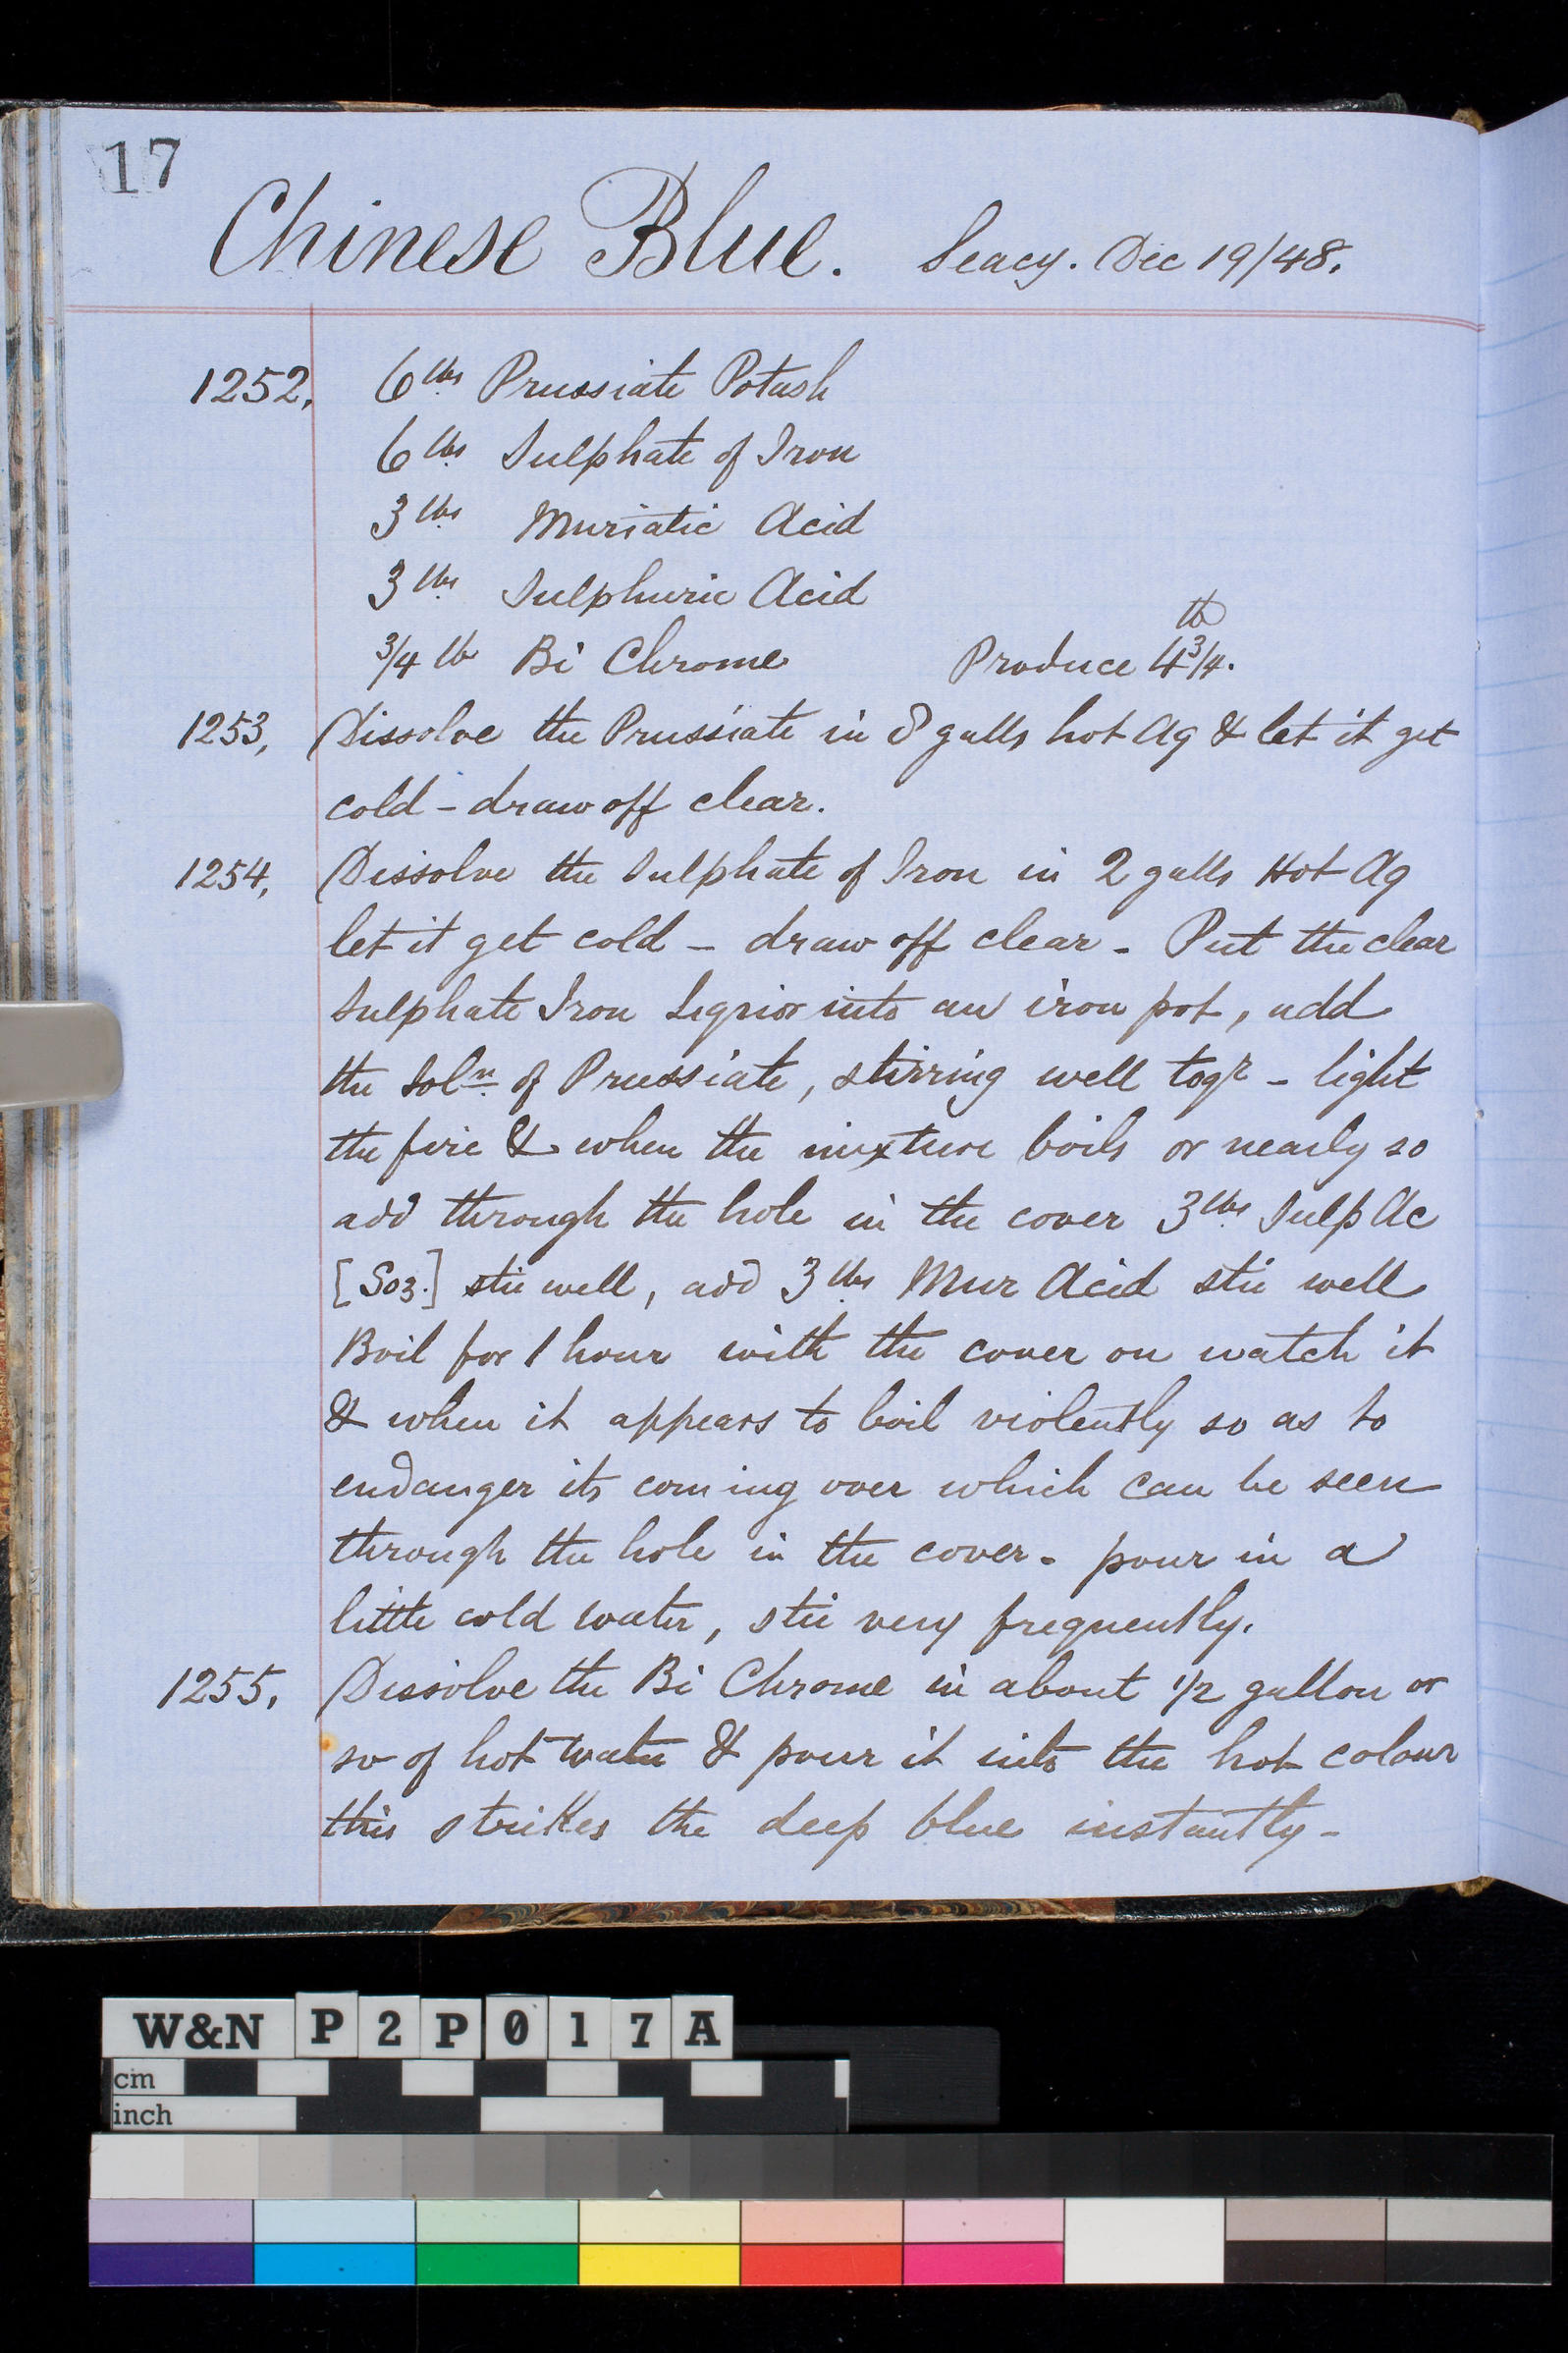 17
Chinese Blue. Seacy. Dec 19/48.
1252. 6 lbs Prussiate Potash
6 lbs Sulphate of Iron
3 lbs Muriatic Acid
3 lbs Sulphuric Acid
3/4 lb Bi Chrome Produce 4 3/4 lb.
1253, Dissolve the Prussiate in galls hot Aq & let it get
cold - draw off clear.
1254, Dissolve the Sulphate of Iron in 2 galls Hot Aq
let it get cold - draw off clear - Put the clear
Sulphate Iron Liquor into an iron pot, add
the Soln. of Prussiate, stirring well togr - light
the fire & when the mixture boils or nearly so
add through the hole in the cover 3 lbs Sulp Ac
[So3.] stir well, add 3 lbs Mur Acid stir well
Boil for 1 hour with the cover on watch it
& when it appears to boil violently so as to
endanger its coming over which can be seen
through the hole in the cover - pour in a
little cold water, stir very frequently.
1255. Dissolve the Bi Chrome in about 1/2 gallon or
so of hot water & pour it into the hot colour
this strikes the deep blue instantly -
W&N P2P017A
cm
inch